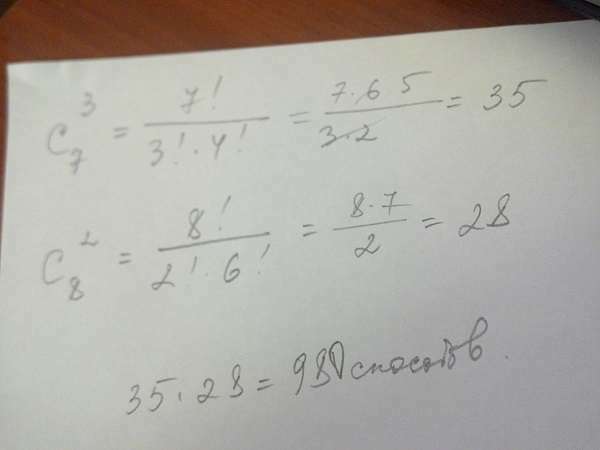 C₇³ = 7! / (3! · 4!) = (7 · 6 5) / (3 · 2) = 35
C₈² = 8! / (2! · 6!) = (8 · 7) / 2 = 28
35 · 28 = 980 способов.